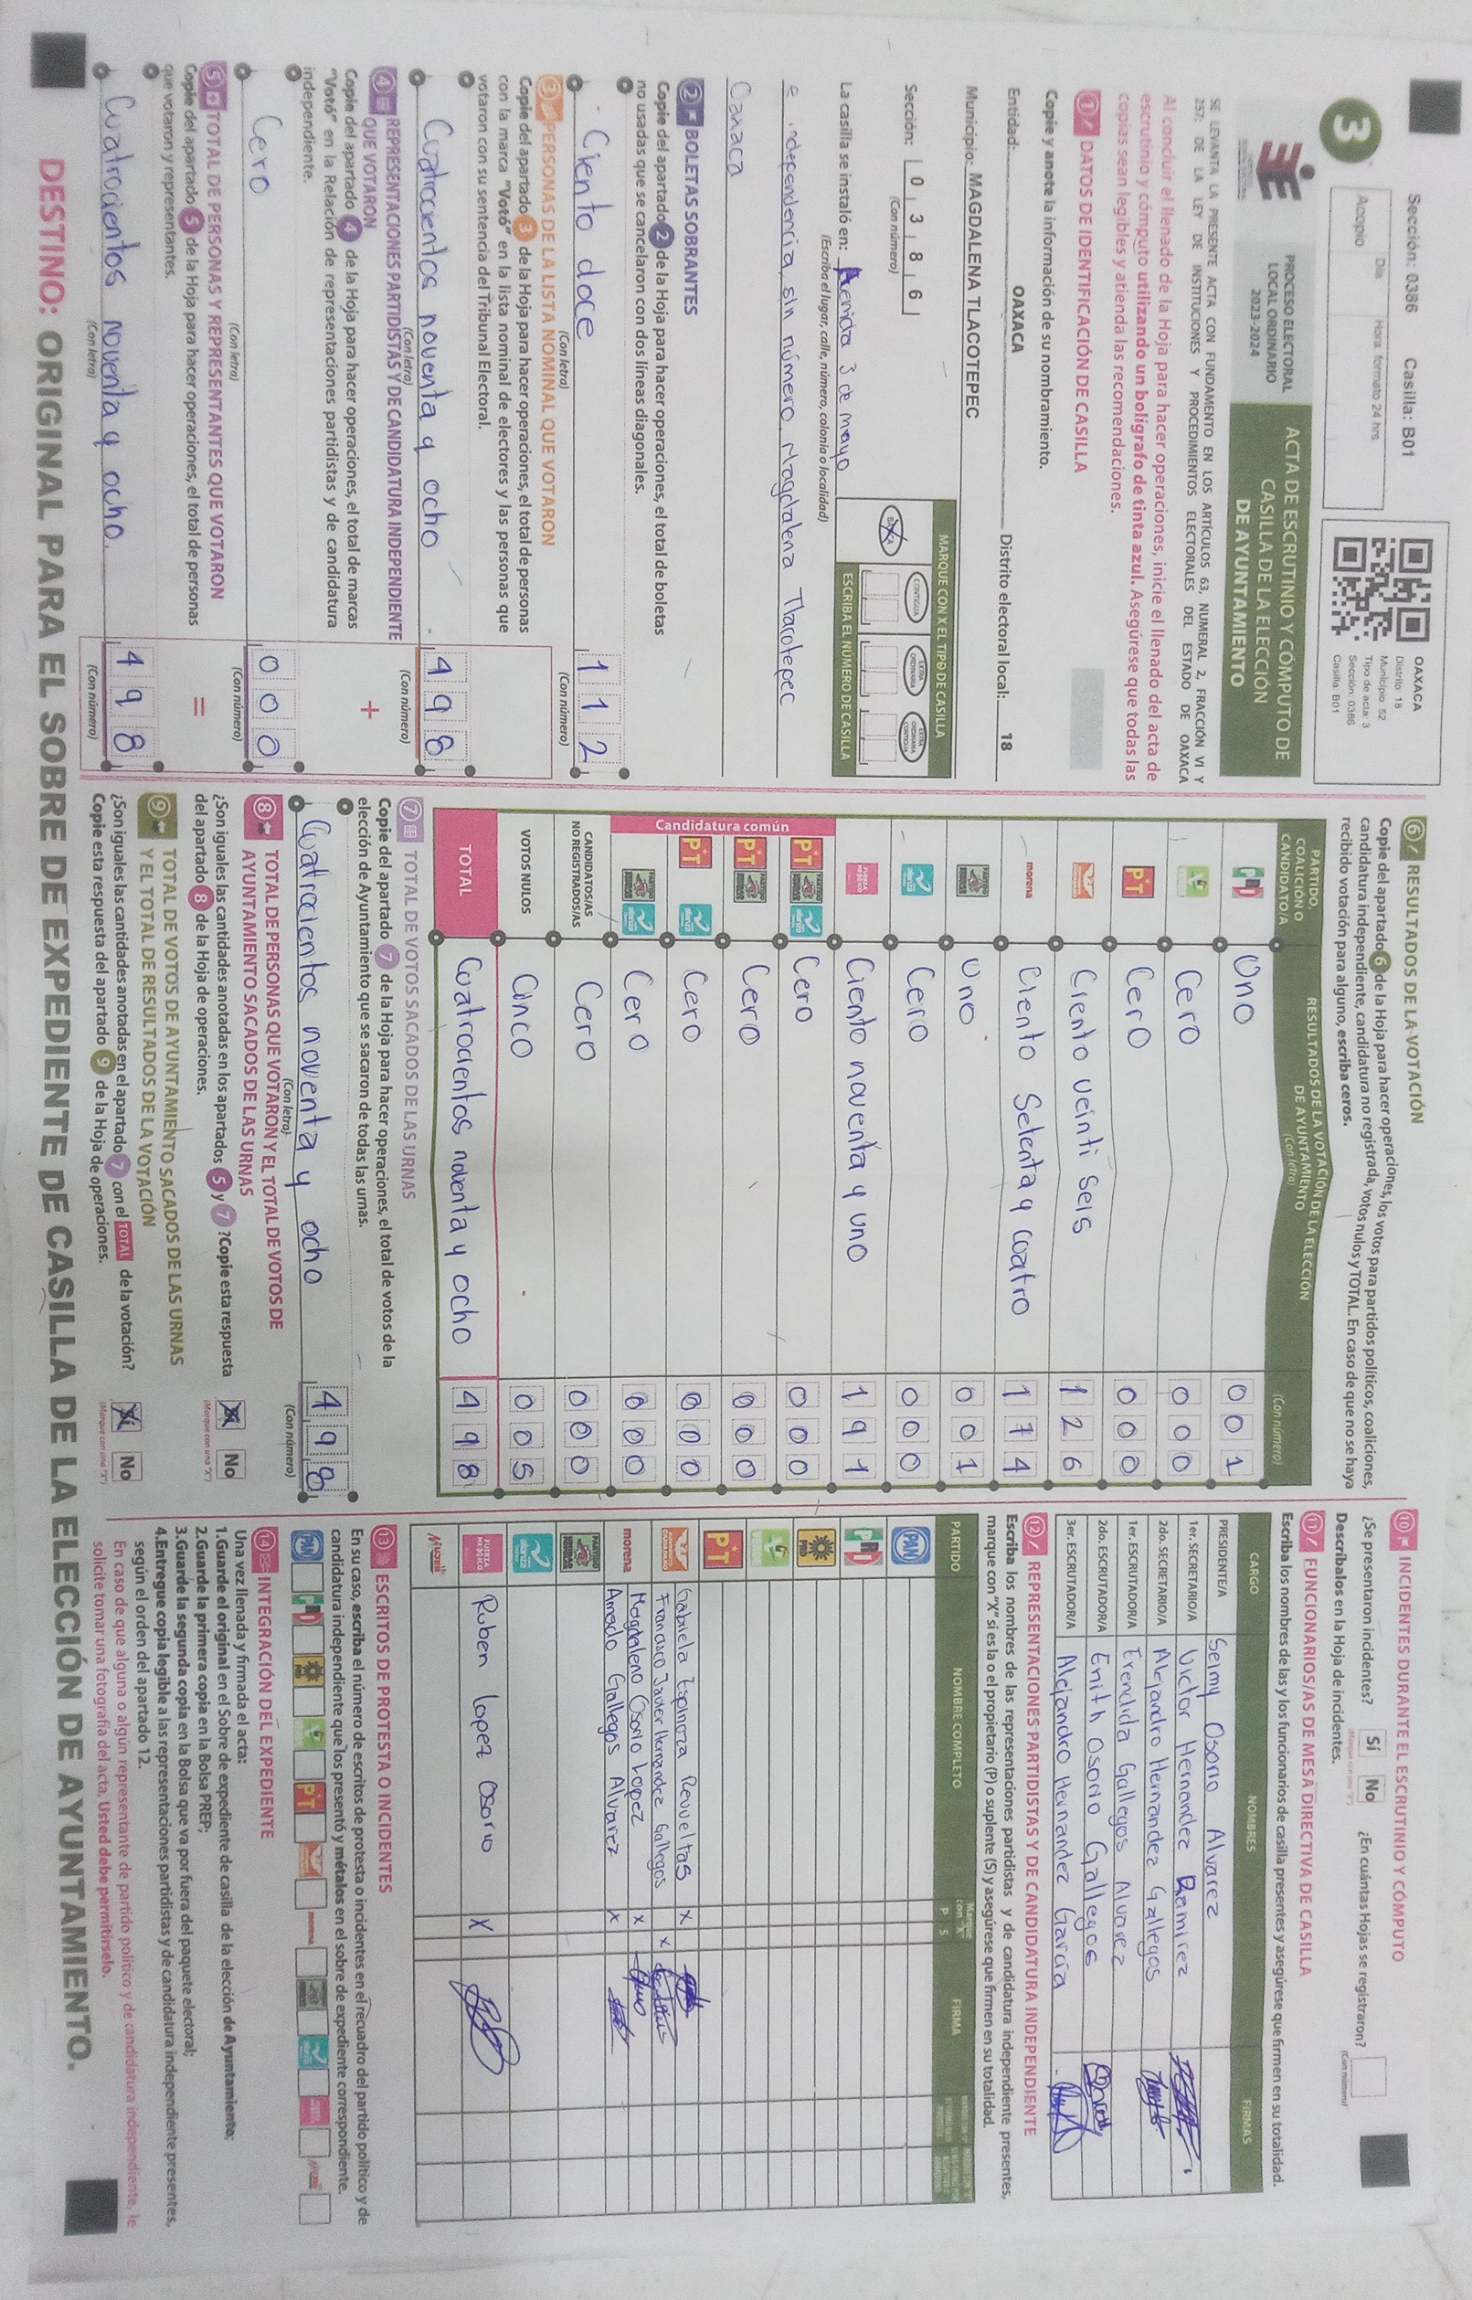 Sección: 0386 Casilla: B01
3
Acopio
Día
Hora: formato 24 hrs.
OAXACA
Distrito: 18
Municipio: 52
Tipo de acta: 3
Sección: 0386
Casilla: B01
PROCESO ELECTORAL
LOCAL ORDINARIO
2023-2024
ACTA DE ESCRUTINIO Y CÓMPUTO DE
CASILLA DE LA ELECCIÓN
DE AYUNTAMIENTO
SE LEVANTA LA PRESENTE ACTA CON FUNDAMENTO EN LOS ARTÍCULOS 63, NUMERAL 2, FRACCIÓN VI Y
257, DE LA LEY DE INSTITUCIONES Y PROCEDIMIENTOS ELECTORALES DEL ESTADO DE OAXACA
Al concluir el llenado de la Hoja para hacer operaciones, inicie el llenado del acta de
escrutinio y cómputo utilizando un bolígrafo de tinta azul. Asegúrese que todas las
copias sean legibles y atienda las recomendaciones.
1 DATOS DE IDENTIFICACIÓN DE CASILLA
Copie y anote la información de su nombramiento.
Entidad: OAXACA Distrito electoral local: 18
Municipio: MAGDALENA TLACOTEPEC
Sección: 0 3 8 6
(Con número)
MARQUE CON X EL TIPO DE CASILLA
CONTIGUA
EXTRA ORDINARIA
EXTRA ORDINARIA CONTIGUA
ESCRIBA EL NÚMERO DE CASILLA
La casilla se instaló en: Avenida 3 de mayo
(Escriba el lugar, calle, número, colonia o localidad)
e independencia, sin número Magdalena Tlacotepec
Oaxaca
2 BOLETAS SOBRANTES
Copie del apartado 2 de la Hoja para hacer operaciones, el total de boletas
no usadas que se cancelaron con dos líneas diagonales.
Ciento doce 1 1 2
(Con letra) (Con número)
3 PERSONAS DE LA LISTA NOMINAL QUE VOTARON
Copie del apartado 3 de la Hoja para hacer operaciones, el total de personas
con la marca "Votó" en la lista nominal de electores y las personas que
votaron con su sentencia del Tribunal Electoral.
Cuatrocientos noventa y ocho 4 9 8
(Con letra) (Con número)
4 REPRESENTACIONES PARTIDISTAS Y DE CANDIDATURA INDEPENDIENTE
QUE VOTARON
+
Copie del apartado 4 de la Hoja para hacer operaciones, el total de marcas
"Votó" en la Relación de representaciones partidistas y de candidatura
independiente.
Cero 0 0 0
(Con letra) (Con número)
5 TOTAL DE PERSONAS Y REPRESENTANTES QUE VOTARON
=
Copie del apartado 5 de la Hoja para hacer operaciones, el total de personas
que votaron y representantes.
Cuatrocientos noventa y ocho. 4 9 8
(Con letra) (Con número)
6 RESULTADOS DE LA VOTACIÓN
Copie del apartado 6 de la Hoja para hacer operaciones, los votos para partidos políticos, coaliciones,
candidatura independiente, candidatura no registrada, votos nulos y TOTAL. En caso de que no se haya
recibido votación para alguno, escriba ceros.
PARTIDO, COALICIÓN O CANDIDATO/A
RESULTADOS DE LA VOTACIÓN DE LA ELECCIÓN
DE AYUNTAMIENTO
(Con letra) (Con número)
PRI Uno 0 0 1
Cero 0 0 0
PT Cero 0 0 0
Ciento veinti seis 1 2 6
morena Ciento Setenta y cuatro 1 7 4
Uno 0 0 1
Cero 0 0 0
Ciento noventa y uno 1 9 1
Candidatura común
PT Cero 0 0 0
PT Cero 0 0 0
PT Cero 0 0 0
Cero 0 0 0
CANDIDATOS/AS NO REGISTRADOS/AS Cero 0 0 0
VOTOS NULOS Cinco 0 0 5
TOTAL Cuatrocientos noventa y ocho 4 9 8
7 TOTAL DE VOTOS SACADOS DE LAS URNAS
Copie del apartado 7 de la Hoja para hacer operaciones, el total de votos de la
elección de Ayuntamiento que se sacaron de todas las urnas.
Cuatrocientos noventa y ocho 4 9 8
(Con letra) (Con número)
8 TOTAL DE PERSONAS QUE VOTARON Y EL TOTAL DE VOTOS DE
AYUNTAMIENTO SACADOS DE LAS URNAS
¿Son iguales las cantidades anotadas en los apartados 5 y 7? Copie esta respuesta
del apartado 8 de la Hoja de operaciones.
Sí No
(Marque con una "X")
9 TOTAL DE VOTOS DE AYUNTAMIENTO SACADOS DE LAS URNAS
Y EL TOTAL DE RESULTADOS DE LA VOTACIÓN
¿Son iguales las cantidades anotadas en el apartado 7 con el TOTAL de la votación?
Copie esta respuesta del apartado 9 de la Hoja de operaciones.
Sí No
(Marque con una "X")
10 INCIDENTES DURANTE EL ESCRUTINIO Y CÓMPUTO
¿Se presentaron incidentes? Sí No ¿En cuántas Hojas se registraron?
(Marque con una "X") (Con número)
Descríbalos en la Hoja de incidentes.
11 FUNCIONARIOS/AS DE MESA DIRECTIVA DE CASILLA
Escriba los nombres de las y los funcionarios de casilla presentes y asegúrese que firmen en su totalidad.
CARGO NOMBRES FIRMAS
PRESIDENTE/A Selmy Osorio Alvarez
1er. SECRETARIO/A Victor Hernandez Ramirez
2do. SECRETARIO/A Alejandro Hernandez Gallegos
1er. ESCRUTADOR/A Erendida Gallegos Alvarez
2do. ESCRUTADOR/A Enith Osorio Gallegos
3er. ESCRUTADOR/A Alejandro Hernandez Garcia
12 REPRESENTACIONES PARTIDISTAS Y DE CANDIDATURA INDEPENDIENTE
Escriba los nombres de las representaciones partidistas y de candidatura independiente presentes,
marque con "X" si es la o el propietario (P) o suplente (S) y asegúrese que firmen en su totalidad.
PARTIDO NOMBRE COMPLETO Marque con "X" P S FIRMA
PAN
PRI
PRD
PT
Gabiela Espinoza Revueltas X
Francisco Javier Hernandez Gallegos X
morena Magdaleno Osorio Lopez X
Amado Gallegos Alvarez X
Ruben Lopez Osorio X
13 ESCRITOS DE PROTESTA O INCIDENTES
En su caso, escriba el número de escritos de protesta o incidentes en el recuadro del partido político y de
candidatura independiente que los presentó y métalos en el sobre de expediente correspondiente.
PAN PRI PT morena
14 INTEGRACIÓN DEL EXPEDIENTE
Una vez llenada y firmada el acta:
1.Guarde el original en el Sobre de expediente de casilla de la elección de Ayuntamiento;
2.Guarde la primera copia en la Bolsa PREP;
3.Guarde la segunda copia en la Bolsa que va por fuera del paquete electoral;
4.Entregue copia legible a las representaciones partidistas y de candidatura independiente presentes,
según el orden del apartado 12.
En caso de que alguna o algún representante de partido político y de candidatura independiente, le
solicite tomar una fotografía del acta, Usted debe permitírselo.
DESTINO: ORIGINAL PARA EL SOBRE DE EXPEDIENTE DE CASILLA DE LA ELECCIÓN DE AYUNTAMIENTO.